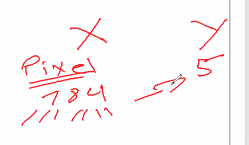 X Y
Pixel 5
784